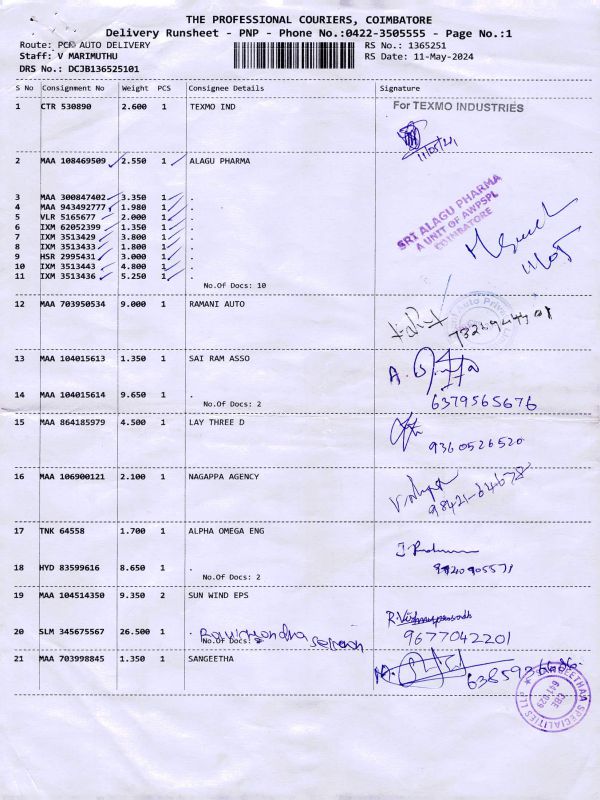 THE PROFESSIONAL COURIERS, COIMBATORE
Delivery Runsheet - PNP - Phone No.:0422-3505555 - Page No.:1
Route: PCN AUTO DELIVERY RS No.: 1365251
Staff: V MARIMUTHU RS Date: 11-May-2024
DRS No.: DCJB136525101
S No Consignment No Weight PCS Consignee Details Signature
1 CTR 530890 2.600 1 TEXMO IND For TEXMO INDUSTRIES
11/05/24
2 MAA 108469509 2.550 1 ALAGU PHARMA
3 MAA 300847402 3.350 1 .
4 MAA 943492777 1.980 1 .
5 VLR 5165677 2.000 1 .
6 IXM 62052399 1.350 1 .
7 IXM 3513429 3.800 1 .
8 IXM 3513433 1.800 1 .
9 HSR 2995431 3.000 1 .
10 IXM 3513443 4.800 1 .
11 IXM 3513436 5.250 1 .
No.Of Docs: 10
SRI ALAGU PHARMA
A UNIT OF AWPSPL
COIMBATORE
12 MAA 703950534 9.000 1 RAMANI AUTO
13 MAA 104015613 1.350 1 SAI RAM ASSO
14 MAA 104015614 9.650 1 .
No.Of Docs: 2
6379565676
15 MAA 864185979 4.500 1 LAY THREE D
9360526520
16 MAA 106900121 2.100 1 NAGAPPA AGENCY
98421-64678
17 TNK 64558 1.700 1 ALPHA OMEGA ENG
18 HYD 83599616 8.650 1 .
No.Of Docs: 2
19 MAA 104514350 9.350 2 SUN WIND EPS
20 SLM 345675567 26.500 1 .
No.Of Docs:
9677042201
21 MAA 703998845 1.350 1 SANGEETHA
SPECIALITIES LLP